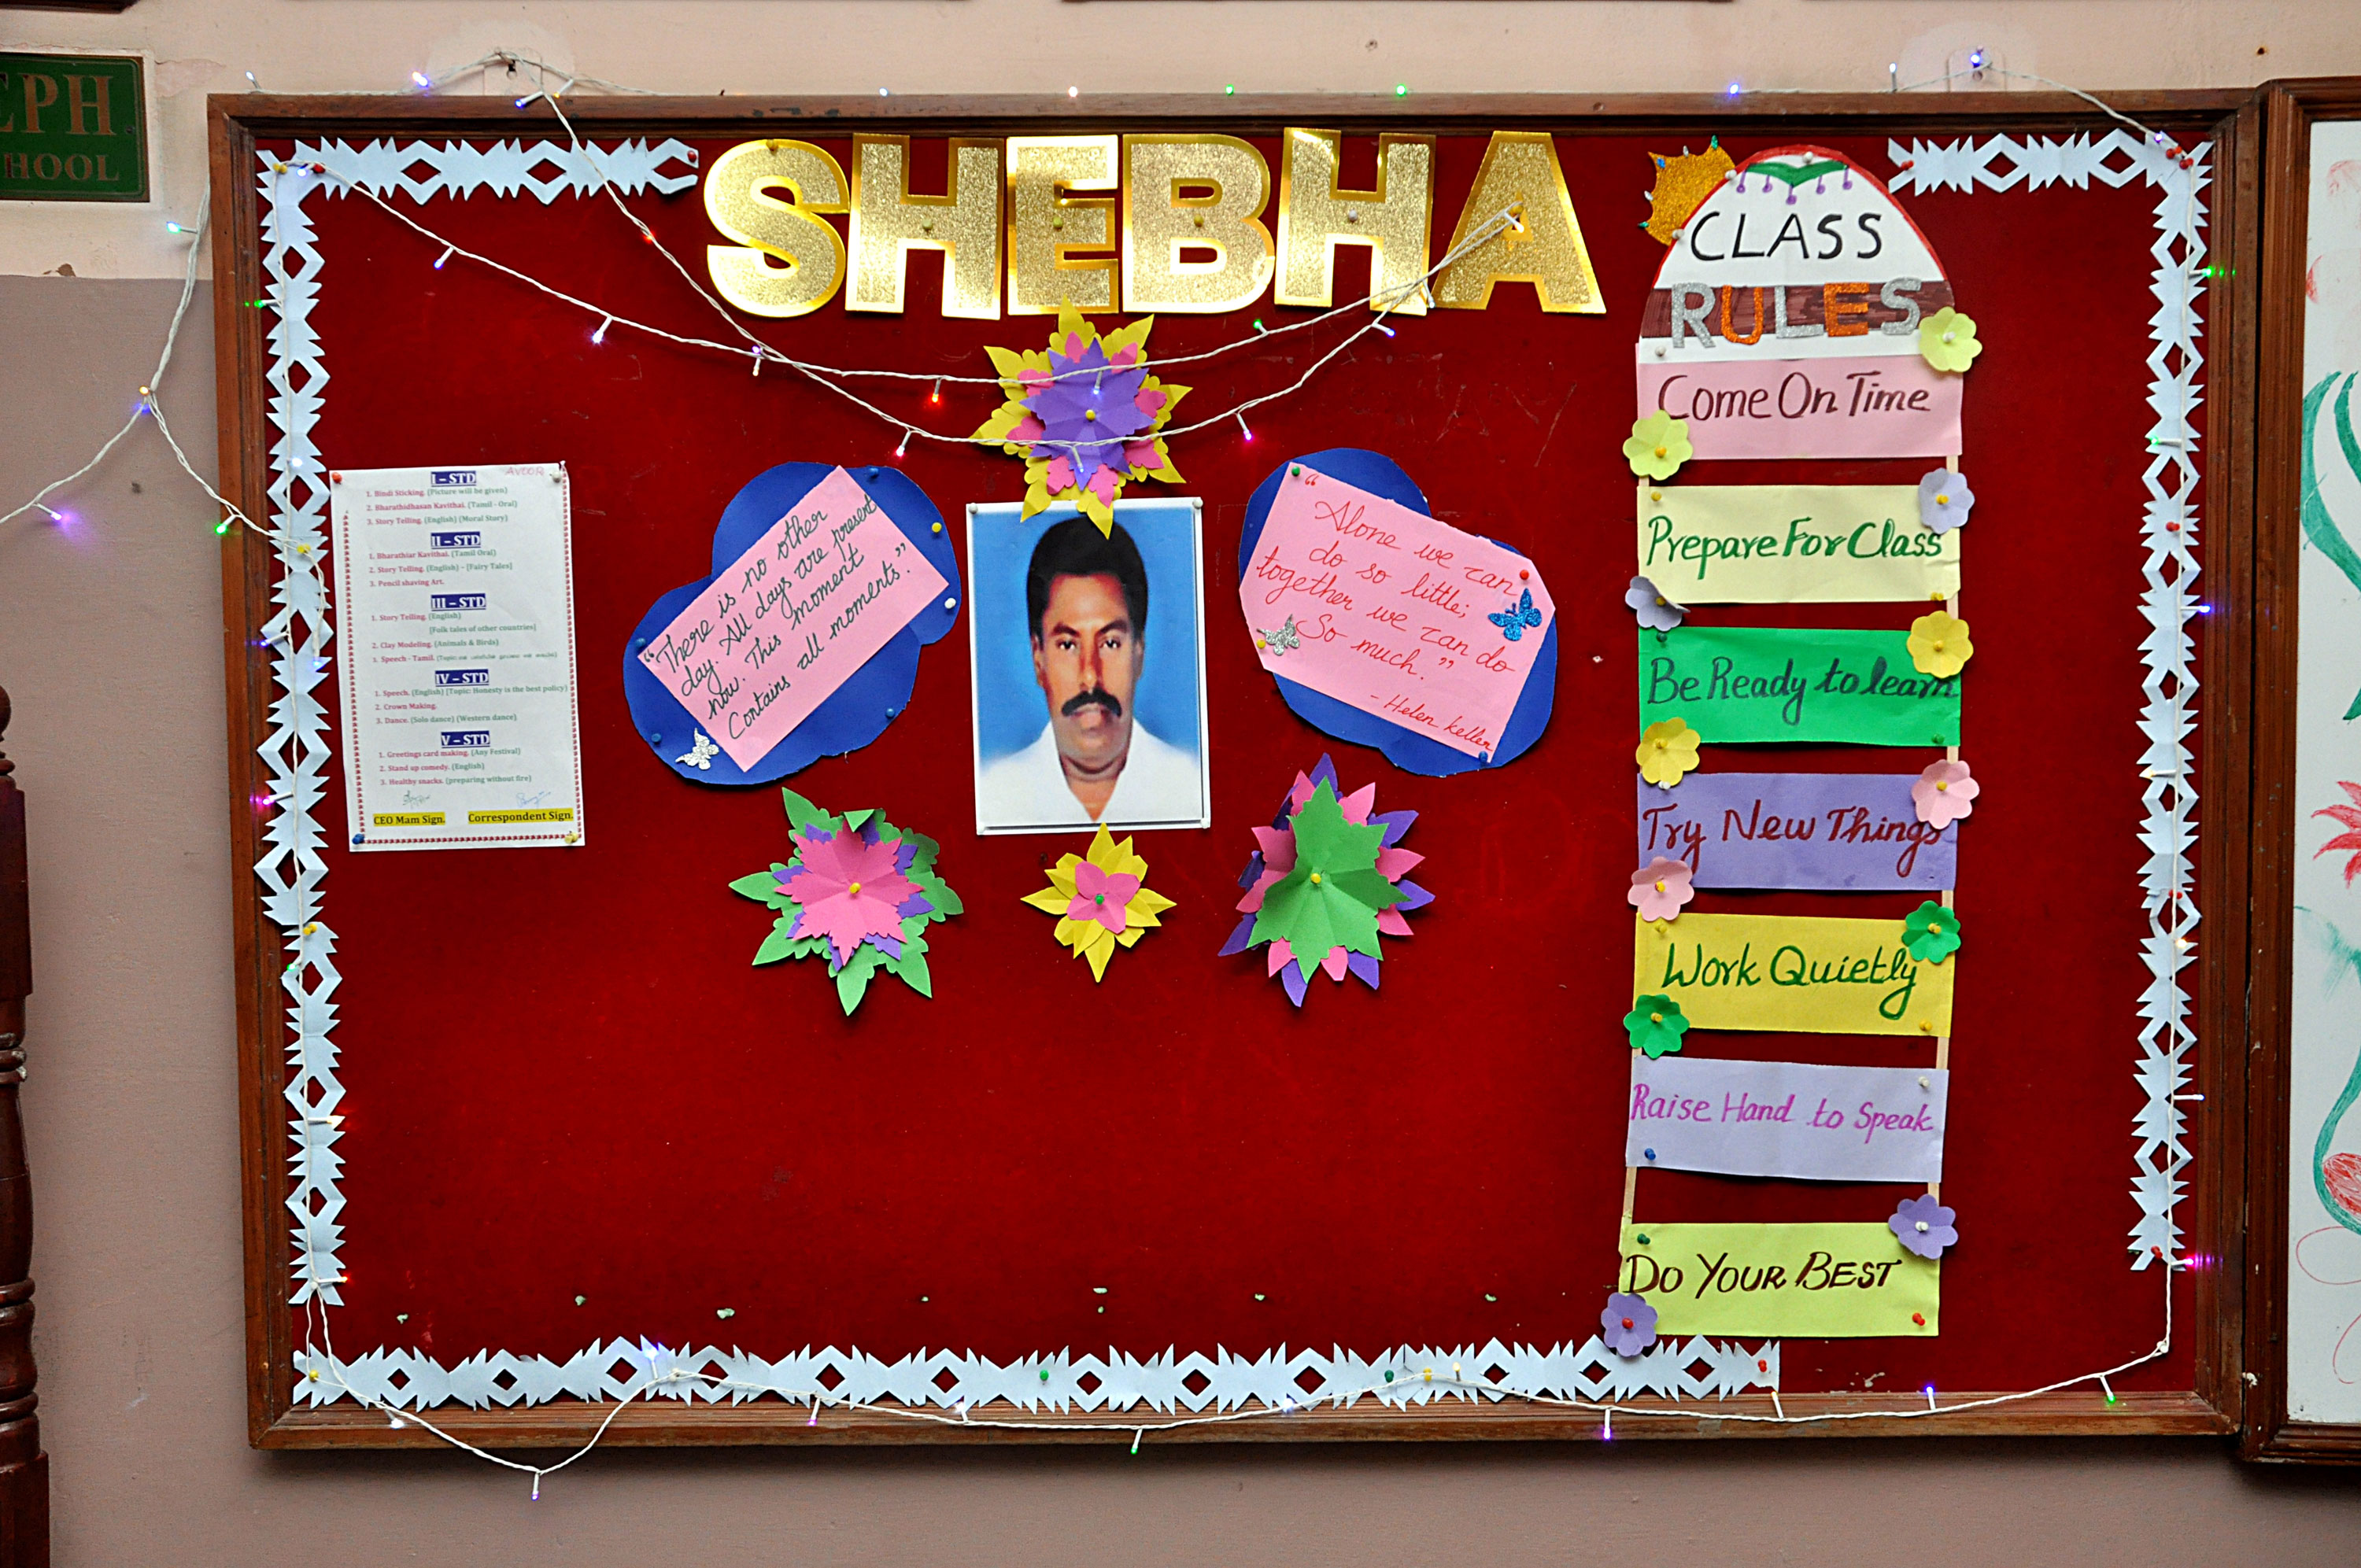 EPH
HOOL
SHEBHA
I - STD
AVOOR
1. Hindi Sticking. (Picture will be given)
2. Bharathidhasan Kavithai. (Tamil - Oral)
3. Story Telling. (English) (Moral Story)
II - STD
1. Bharathiar Kavithai. (Tamil Oral)
2. Story Telling. (English) - [Fairy Tales]
3. Pencil shaving Art.
III - STD
1. Story Telling. (English)
[Folk tales of other countries]
2. Clay Modeling. (Animals & Birds)
1. Speech - Tamil. (Topic:
IV - STD
1. Speech. (English) (Topic: Honesty is the best policy)
2. Crown Making.
3. Dance. (Solo dance) (Western dance)
V - STD
1. Greetings card making. (Any Festival)
2. Stand up comedy. (English)
3. Healthy snacks. (preparing without fire)
CEO Mam Sign. Correspondent Sign.
"There is no other
day. All days are present
now. This moment
Contains all moments."
"Alone we can
do so little;
together we can do
So much."
- Helen keller
CLASS
RULES
Come On Time
Prepare For Class
Be Ready to learn
Try New Things
Work Quietly
Raise Hand to Speak
DO YOUR BEST